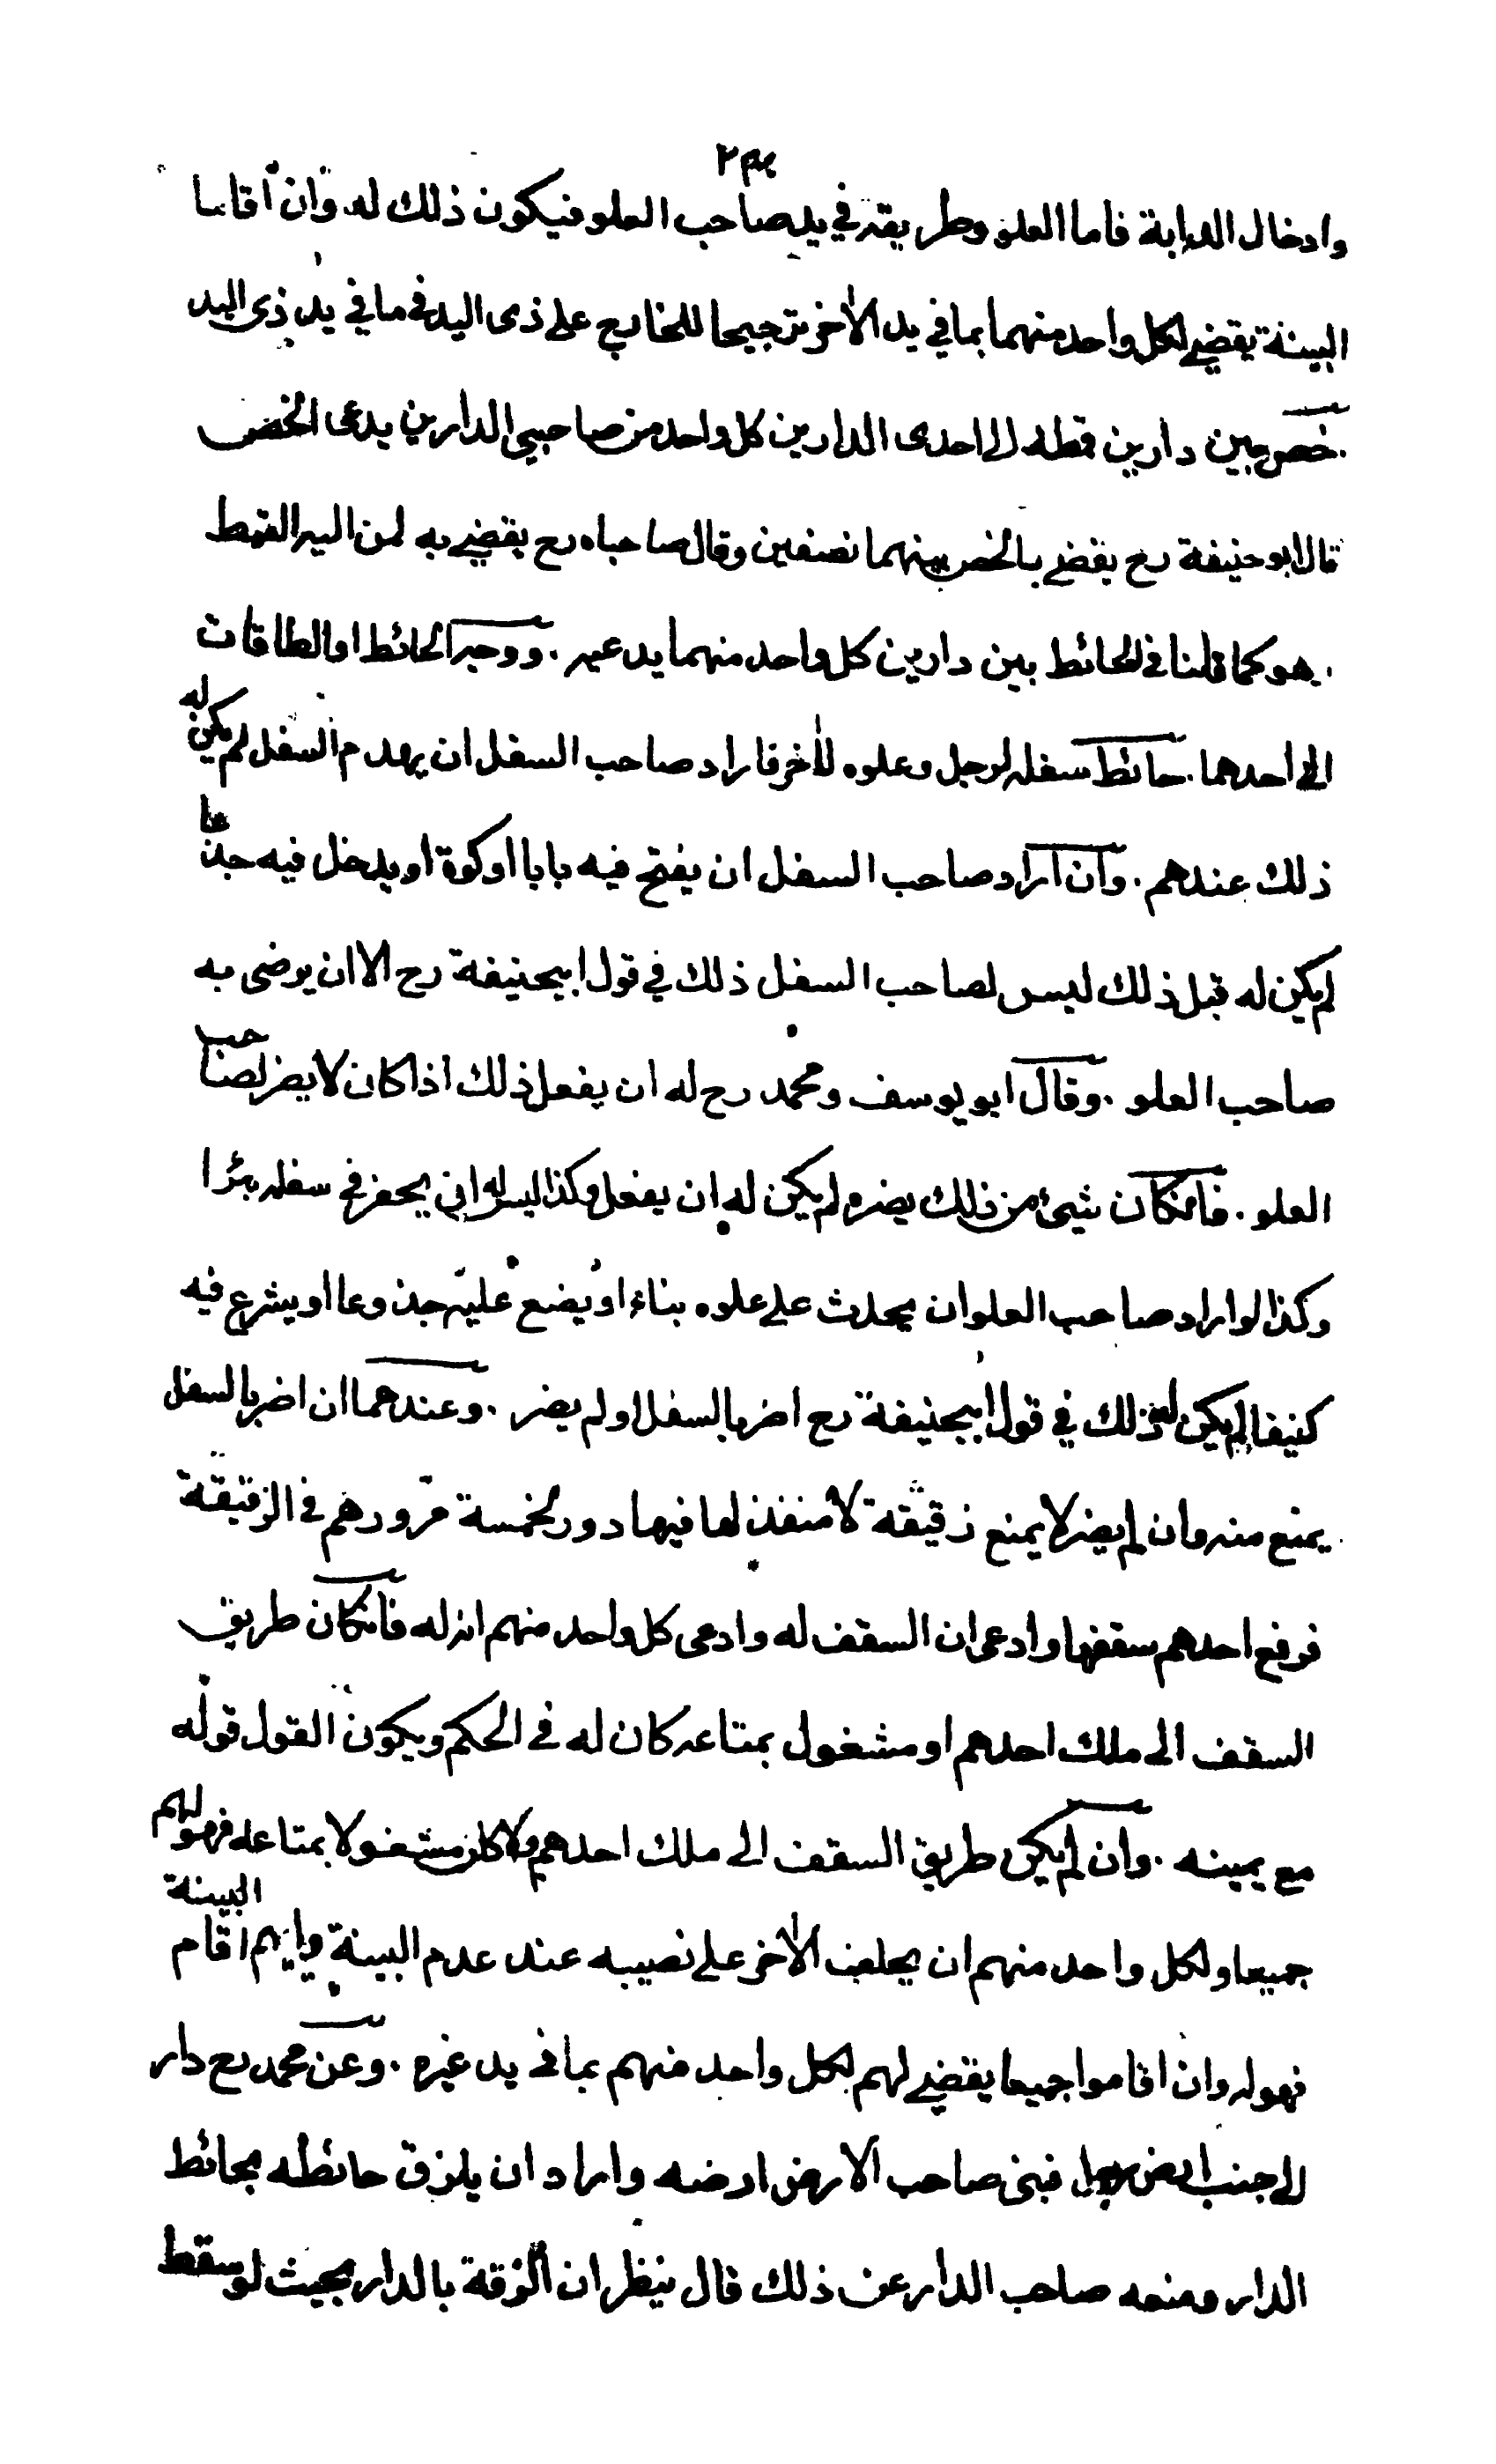 وادخال الدابة فاما العلو وطريقه في يد صاحب العلو فيكون ذلك له وان اقاما
البينة يقضى لكل واحد منهما بما في يد الآخر ترجيحا للخارج على ذى اليد في ما في يد ذى اليد
خص بين دارين قمطه الى احدى الدارين كل واحد من صاحبي الدارين يدعى الخص
قال ابو حنيفة رح يقضى بالخص بينهما نصفين وقال صاحباه رح يقضى به لمن اليه القمط
هو كما قلنا في الحائط بين دارين كل واحد منهما يدعيه . ووجه الحائط او الطاقات
الى احدهما . حائط سفله لرجل وعلوه للآخر فاراد صاحب السفل ان يهدم السفل لم يكن له
ذلك عندهم . وان اراد صاحب السفل ان يفتح فيه بابا او كوة او يدخل فيه جذعا
لم يكن له قبل ذلك ليس لصاحب السفل ذلك في قول ابيحنيفة رح الا ان يرضى به
صاحب العلو . وقال ابو يوسف ومحمد رح له ان يفعل ذلك اذا كان لا يضر لصاحب
العلو . فانكان شيئ من ذلك يضره لم يكن له ان يفعل وكذا ليس له ان يحفر في سفله بئرا
وكذا لو اراد صاحب العلو ان يحدث على علوه بناء او يضع عليه جذوعا او يشرع فيه
كنيفا لم يكن له ذلك في قول ابيحنيفة رح اضر بالسفل او لم يضر . وعندهما ان اضر بالسفل
يمنع منه وان لم يضر لا يمنع زقيقة لا منفذ لها فيها دور لخمسة مرورهم في الزقيقة
فرفع احدهم سقفها وادعى ان السقف له وادعى كل واحد منهم انه له فانكان طريق
السقف الى ملك احدهم او مشغول بمتاعه كان له في الحكم ويكون القول قوله
مع يمينه . وان لم يكن طريق السقف الى ملك احدهم ولا كان مشغولا بمتاعه فهو لهم
جميعا ولكل واحد منهم ان يحلف الآخر على نصيبه عند عدم البينة وايهم اقام البينة
فهو له وان اقاموا جميعا يقضى لهم لكل واحد منهم بما في يد غيره . وعن محمد رح دار
الى جنب ارض رجل فبنى صاحب الارض ارضه واراد ان يلزق حائطه بحائط
الدار ومنعه صاحب الدار عن ذلك قال ينظر ان الزقه بالدار بحيث لو سقط